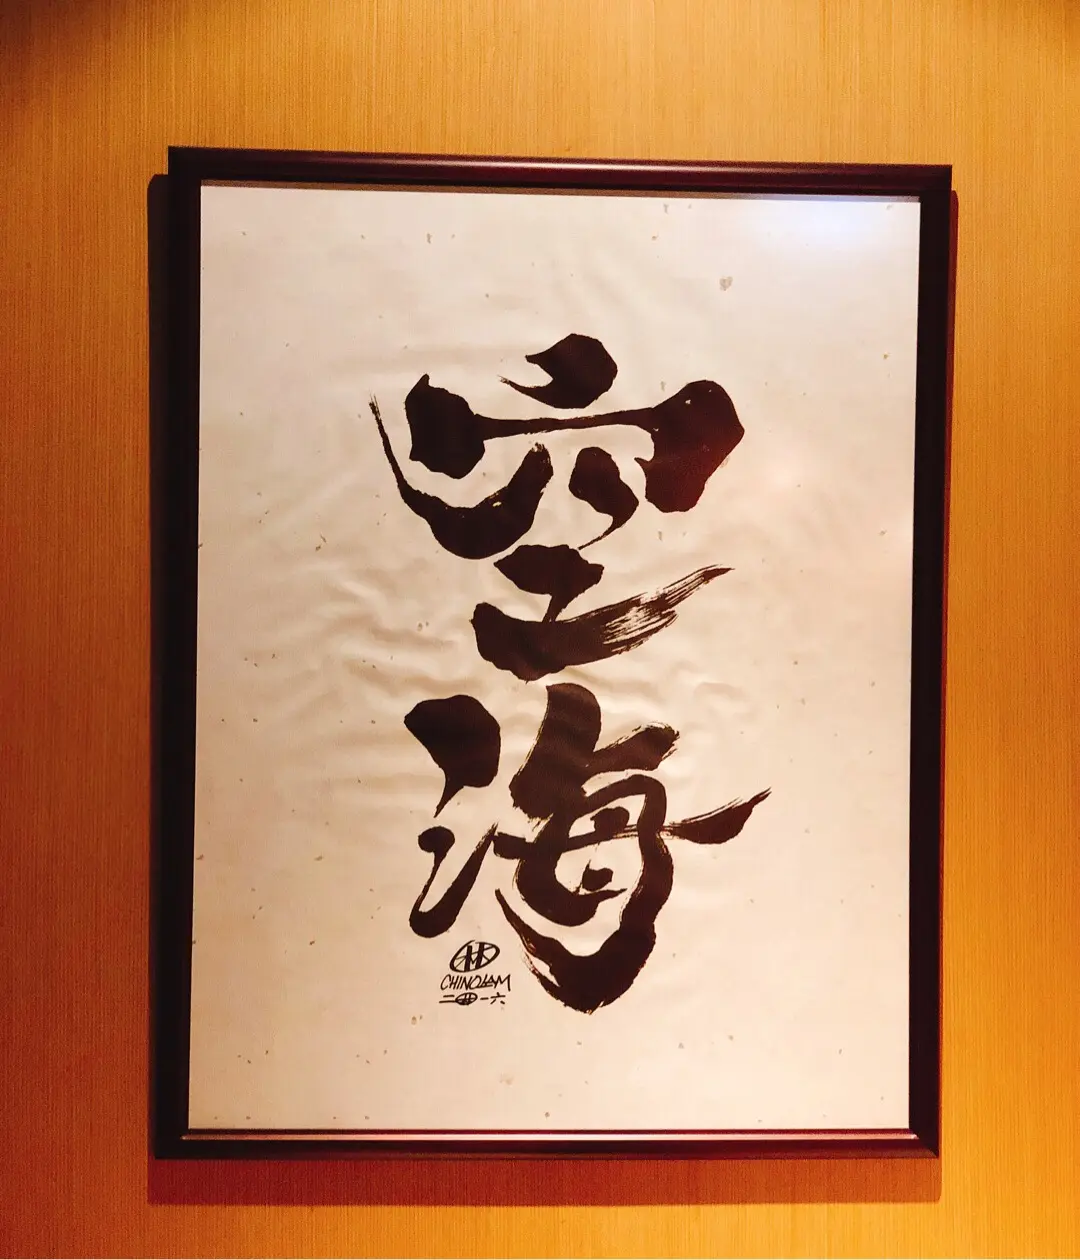 空海
CHINOLAM
二〇一六